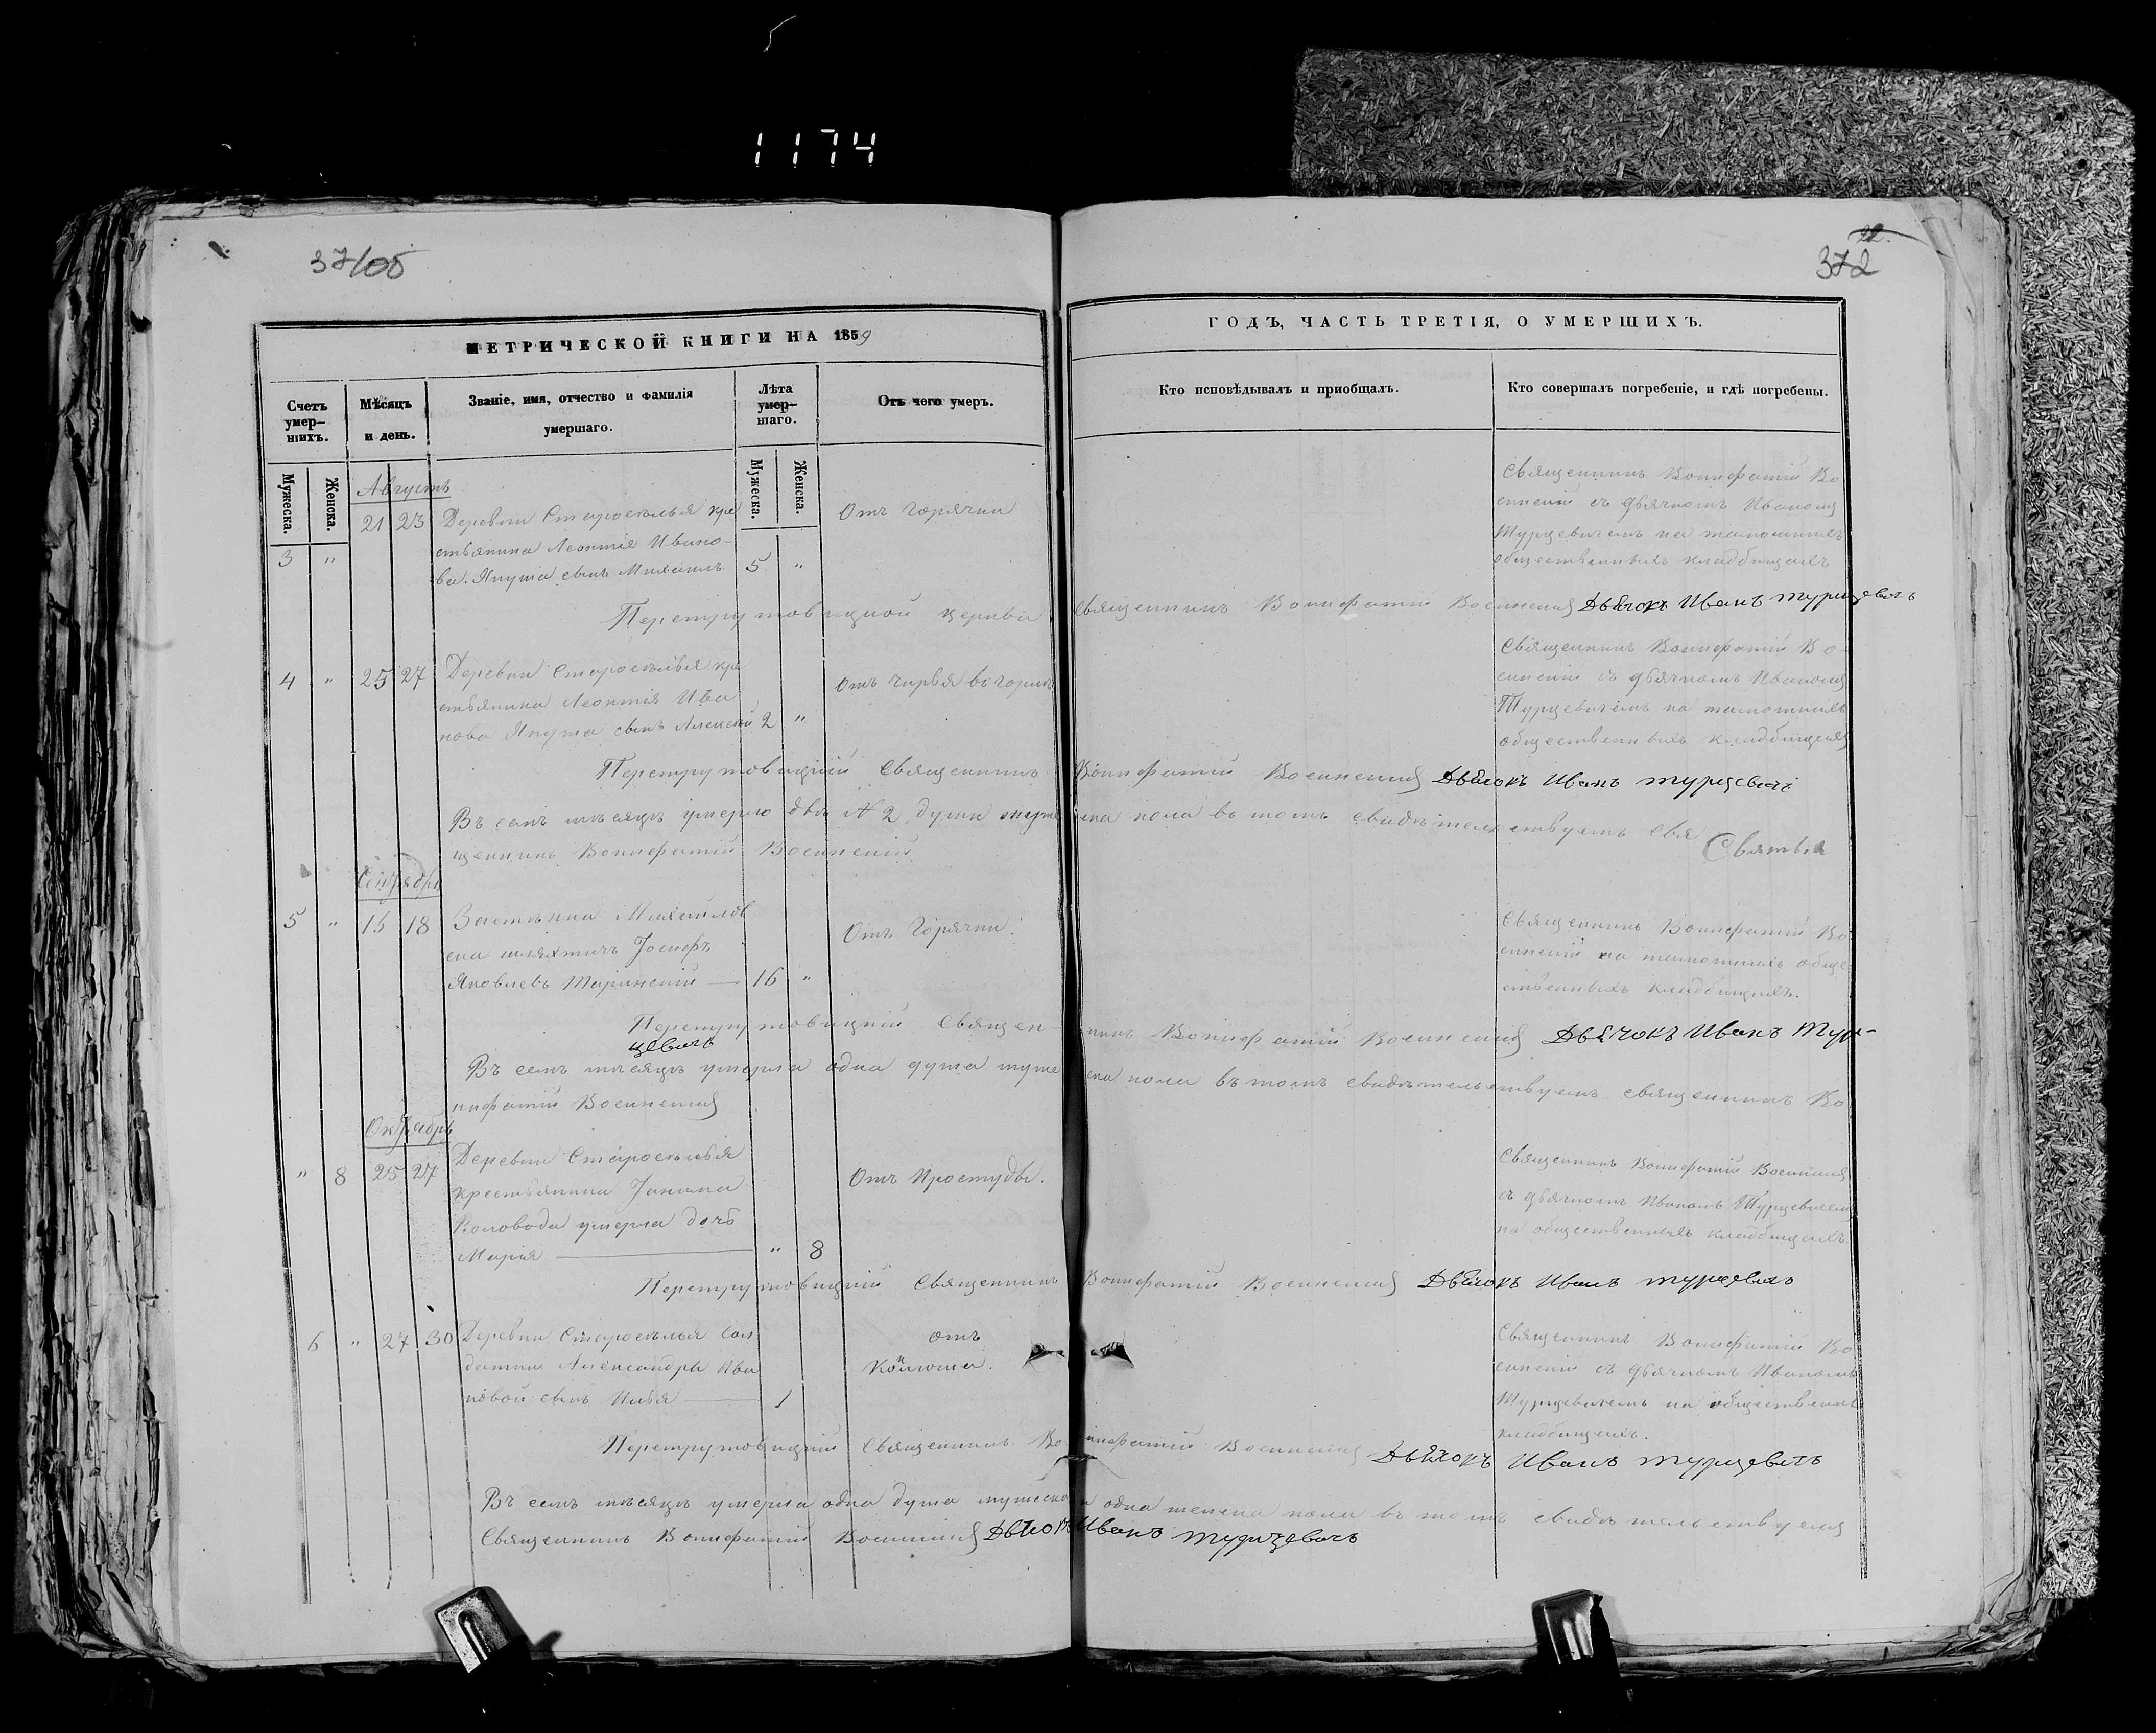 1174
37/об
22.
372
МЕТРИЧЕСКОЙ КНИГИ НА 1859
ГОДЪ, ЧАСТЬ ТРЕТІЯ, О УМЕРШИХЪ.
Счетъ умер-шихъ.
Мѣсяцъ и день.
Званіе, имя, отчество и фамилія умершаго.
Лѣта умер-шаго.
Отъ чего умеръ.
Кто исповѣдывалъ и приобщалъ.
Кто совершалъ погребеніе, и гдѣ погребены.
Мужеска.
Женска.
Мужеска.
Женска.
Августъ
3 " 21 23
Деревни Старосѣлья кре
стьянина Леонтія Ивано-
ва Януша сынъ Михаилъ 5 "
Отъ Горячки
Священникъ Вонифатій Во
еинскій съ дьячкомъ Иваномъ
Турцевичемъ на тамошнихъ
общественныхъ кладбищахъ
Перетрутовицкой церкви Священникъ Вонифатій Дьячокъ Иванъ Турцевичъ
4 " 25 27
Деревни Старосѣлья кре
стьянина Леонтія Ива
нова Януша сынъ Алексей 2 "
Отъ чирья въ горлѣ
Священникъ Вонифатій
съ дьячкомъ Иваномъ
Турцевичемъ на тамошнихъ
общественныхъ кладбищахъ
Перетрутовицкій Священникъ Вонифатій Дьячокъ Иванъ Турцевичъ
Въ семъ мѣсяцѣ умерло двѣ № 2 души мужеска пола въ томъ свидѣтельствуетъ Свя
щенникъ Вонифатій
Святыя
Сентябрь
5 " 15 18
Застѣнка Михайлов
ска шляхтичъ Іосифъ
Яковлевъ 16 "
Отъ Горячки.
Священникъ Вонифатій
на тамошнихъ обще
ственныхъ кладбищахъ.
Перетрутовицкій Священ-никъ Вонифатій Дьячокъ Иванъ Тур-
цевичъ
Въ семъ мѣсяцѣ умерла одна душа мужеска пола въ томъ свидѣтельствуетъ священникъ Во
нифатій
Октябрь
" 8 25 27
Деревни Старосѣлья
крестьянина
Коловода умерла дочь
Марія " 8
Отъ Простуды.
Священникъ Вонифатій
съ дьячкомъ Иваномъ Турцевичемъ
на общественныхъ кладбищахъ
Перетрутовицкій Священникъ Вонифатій Дьячокъ Иванъ Турцевичъ
6 " 27 30
Деревни Старосѣлья сол
датки Александры Ива
новой сынъ Илья 1
отъ
Священникъ Вонифатій
съ дьячкомъ Иваномъ
Турцевичемъ на обществен
кладбищахъ.
Перетрутовицкій Священникъ Вонифатій Дьячокъ Иванъ Турцевичъ
Въ семъ мѣсяцѣ умерла одна душа мужеска и одна женска пола въ томъ свидѣтельствуетъ
Священникъ Вонифатій Дьячокъ Иванъ Турцевичъ